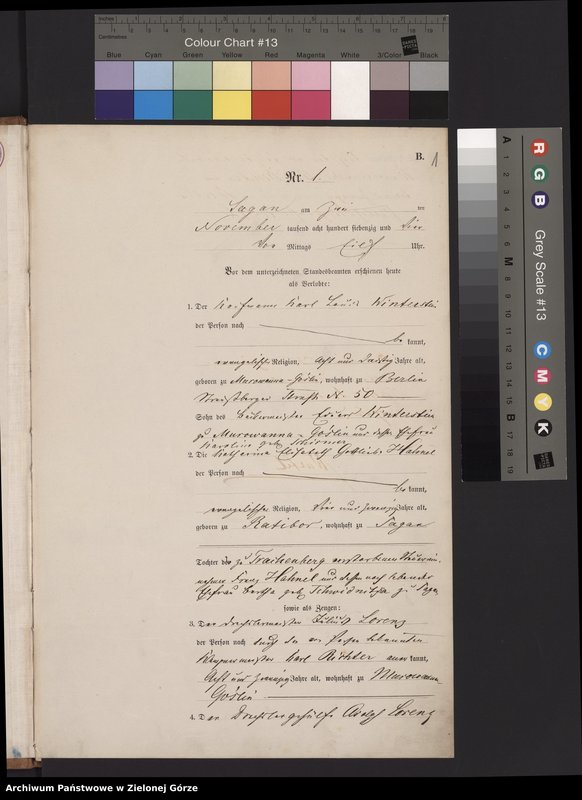 Inches
Centimetres
Colour Chart #13
Blue Cyan Green Yellow Red Magenta White 3/Color Black
B. 1
Nr. 1
Sagan am
November tausend acht hundert siebenzig und vier
Vor Mittags Uhr.
Vor dem unterzeichneten Standesbeamten erschienen heute
als Verlobte:
1. Der Kaufmann Karl Louis Winterstein
der Person nach
be kannt,
evangelischer Religion, Acht und Jahre alt,
geboren zu Murowanna-Goslin, wohnhaft zu Berlin
Straße No 50
Sohn des Edward Winterstein
zu Murowanna-Goslin und dessen Ehefrau
Karoline geb.
2. Die Katharina Elisabeth Gottliebe Hahnel
der Person nach
be kannt,
evangelischer Religion, vier und zwanzig Jahre alt,
geboren zu Ratibor, wohnhaft zu Sagan
Tochter des zu Trachenberg verstorbenen
Franz Hahnel und dessen noch lebender
Ehefrau Bertha geb. zu Sagan
sowie als Zeugen:
3. Der Drechslermeister Julius Lorenz
der Person nach durch den von Person bekannten
Klempnermeister Karl Richter aner kannt,
Acht und zwanzig Jahre alt, wohnhaft zu Murowanna-
Goslin
4. Der Drechslergehülfe Adolph Lorenz
R G B
Grey Scale #13
C M Y K
A 1 2 3 4 5 6 M 8 9 10 11 12 13 14 15 B 17 18 19
Archiwum Państwowe w Zielonej Górze